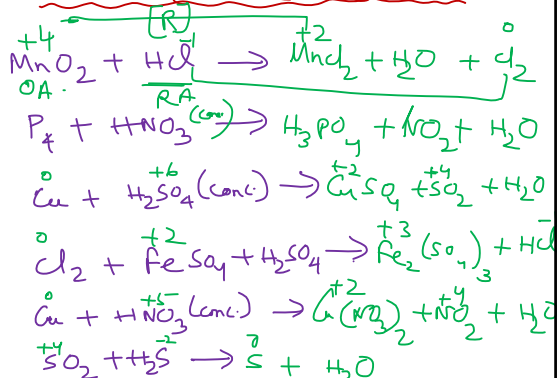 (R)
+4 -1 +2 0
MnO₂ + HCl → MnCl₂ + H₂O + Cl₂
OA. RA
P₄ + HNO₃ (conc) → H₃PO₄ + NO₂ + H₂O
0 +6 +2 +4
Cu + H₂SO₄ (conc.) → CuSO₄ + SO₂ + H₂O
0 +2 +3 -
Cl₂ + FeSO₄ + H₂SO₄ → Fe₂(SO₄)₃ + HCl
0 +5 +2 +4
Cu + HNO₃ (conc.) → Cu(NO₃)₂ + NO₂ + H₂O
+4 -2 0
SO₂ + H₂S → S + H₂O